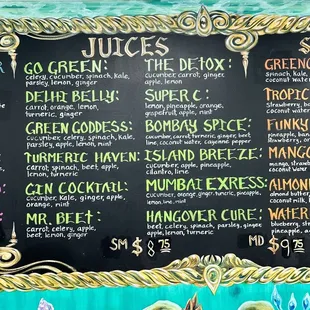 JUICES
GO GREEN:
celery, cucumber, spinach, kale,
parsley, lemon, ginger
DELHI BELLY:
carrot, orange, lemon,
turmeric
GREEN GODDESS:
cucumber, celery, spinach, kale,
parsley, apple, lemon, mint
TURMERIC HAVEN:
carrot, spinach, beet, apple,
lemon, turmeric
GIN COCKTAIL:
cucumber, kale, ginger, apple,
orange, mint
MR. BEET:
carrot, celery, apple,
beet, lemon, ginger
THE DETOX:
cucumber, carrot, ginger
apple, lemon
SUPER C:
lemon, pineapple, orange,
grapefruit, apple, mint
BOMBAY SPICE:
cucumber, carrot, turmeric, ginger, beet
lime, coconut water, cayenne pepper
ISLAND BREEZE:
cucumber, apple, pineapple,
cilantro, lime
MUMBAI EXRESS:
cucumber, orange, ginger, turmeric, pineapple,
lemon, lime, mint
HANGOVER CURE:
beet, celery, spinach, parsley, ginger
apple, lemon, turmeric
SM $8.75
MD $9.75
S
GREEN
spinach, kale,
coconut water
TROPIC
Strawberry, ba
coconut water
FUNKY
pineapple, banan
strawberry,
MANGO
mango, strawb
coconut water
ALMON
almond butter,
coconut milk,
WATER
blueberry, str
pineapple,